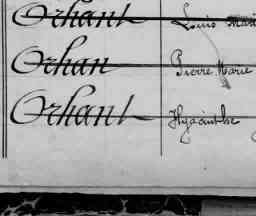 Orhant Louis Marie
Orhan Pierre Marie
Orhant Hyacinthe